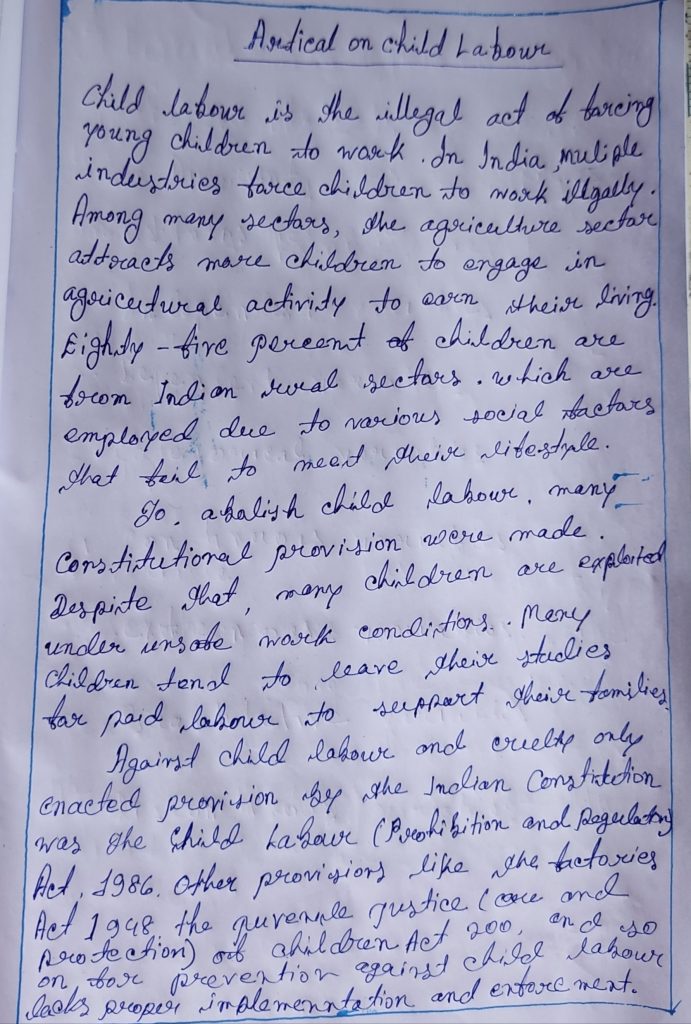 Artical on child Labour
Child labour is the illegal act of forcing
young children to work. In India, muliple
industries force children to work illgally.
Among many sectors, the agriculture sector
attracts more children to engage in
agricultural activity to earn their living.
Eighty-five percent of children are
from Indian rural sectors. which are
employed due to various social factors
that fail to meet their lifestyle.
To, abolish child labour, many
Constitutional provision were made.
Despite that, many children are exploited
under unsafe work conditions. Many
Children tend to leave their studies
for paid labour to support their families.
Against child labour and cruelty only
enacted provision by the Indian Constitution
was the Child Labour (Prohibition and Regulation)
Act, 1986. Other provisions like the factories
Act 1948, the juvenile justice (care and
protection) of children Act 200, and so
on for prevention against child labour
lacks proper implemenntation and enforcement.